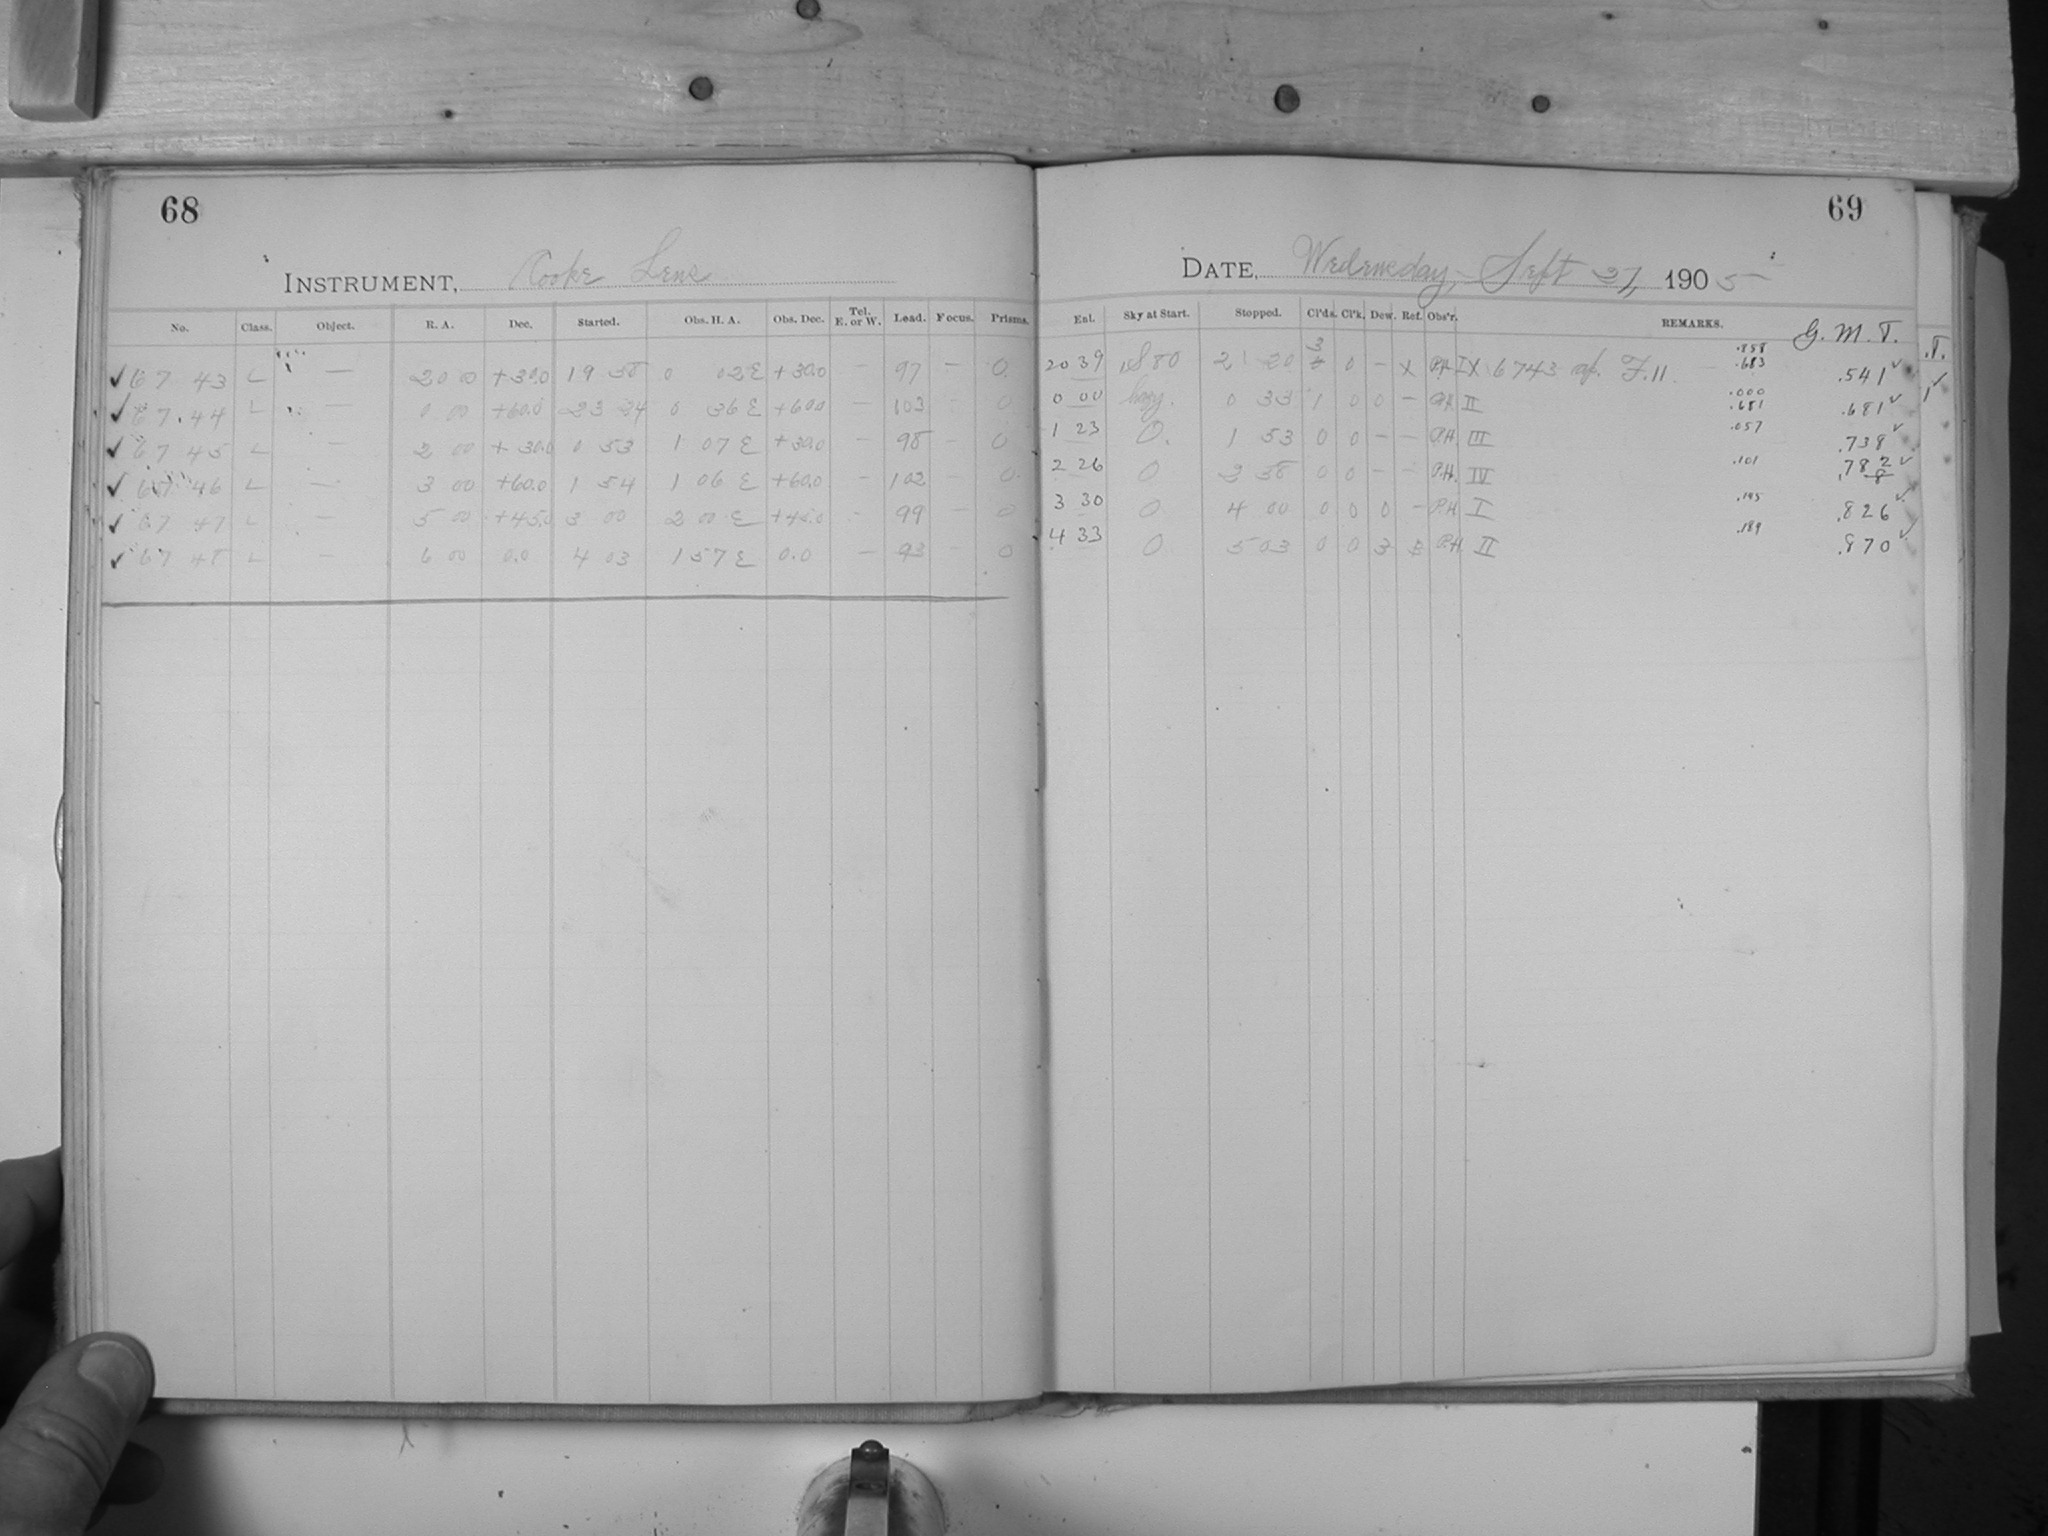 68
INSTRUMENT, Cooke Lens
No. Class. Object. R. A. Dec. Started. Obs. H. A. Obs. Dec. Tel. E. or W. Load. Focus. Prisms.
✓ 67 43 L — 20 00 +30.0 19 58 0 02 E +30.0 — 97 — 0
✓ 67 44 L — 0 00 +60.0 23 24 0 36 E +60.0 — 103 — 0
✓ 67 45 L — 2 00 +30.0 0 53 1 07 E +30.0 — 98 — 0
✓ 67 46 L — 3 00 +60.0 1 54 1 06 E +60.0 — 102 — 0
✓ 67 47 L — 5 00 +45.0 3 00 2 00 E +45.0 — 99 — 0
✓ 67 48 L — 6 00 0.0 4 03 1 57 E 0.0 — 93 — 0
69
DATE, Wednesday, Sept 27, 1905
Ent. Sky at Start. Stopped. Cl'ds. Cl'k. Dew. Ref. Obs'r. REMARKS. G. M. T.
20 39 S80 21 20 3 0 — X P.H. IX 6743 ap. F.11 .858 .683 .541 ✓
0 00 hazy. 0 33 1 0 0 — P.H. II .000 .681 .681 ✓
1 23 0. 1 53 0 0 — — P.H. III .057 .738 ✓
2 26 0 2 58 0 0 — — P.H. IV .101 .782 ✓
8
3 30 0 4 00 0 0 0 — P.H. I .145 .826 ✓
4 33 0 5 03 0 0 3 P.H. II .189 .870 ✓
.T.
1 ✓